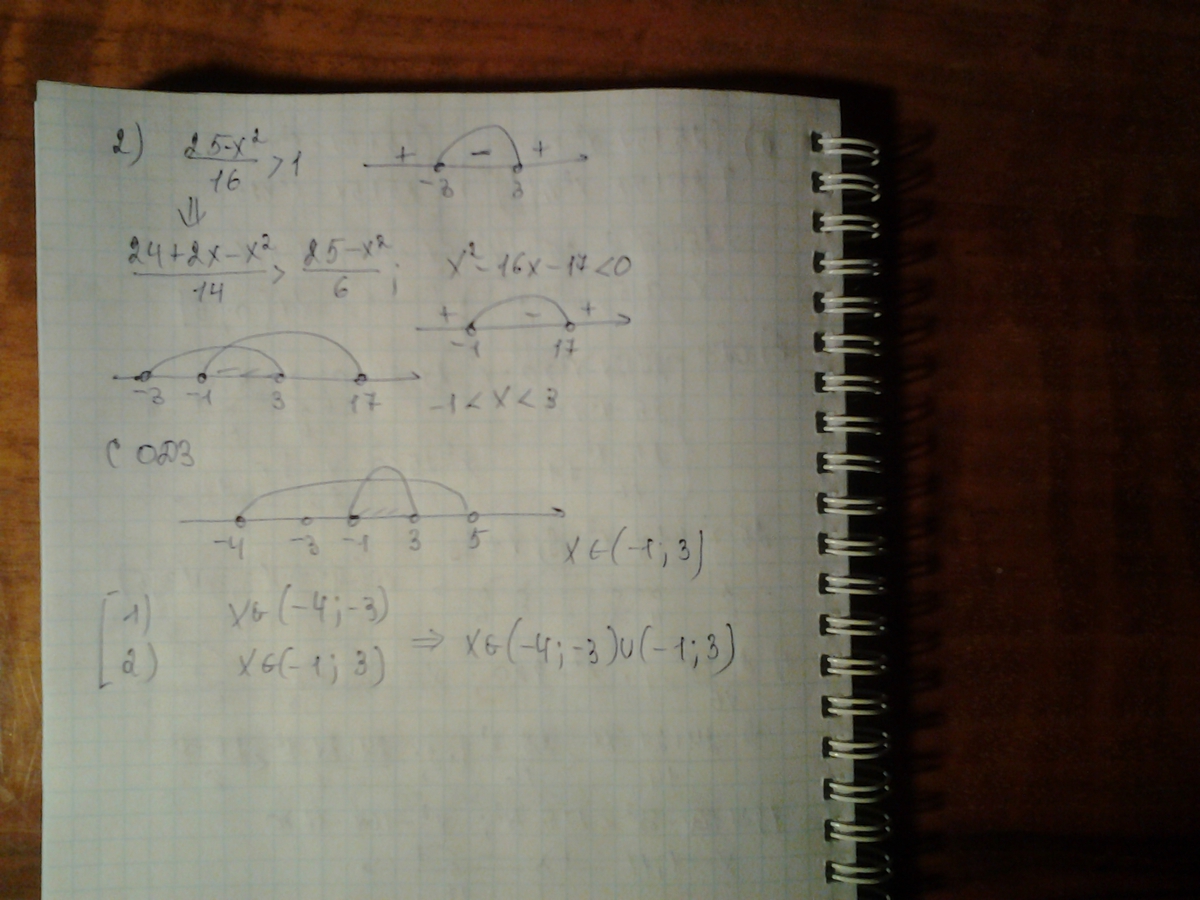 2) (25-x²)/16 > 1
+ - +
-3 3
⇓
(24+2x-x²)/14 > (25-x²)/6; x²-16x-17<0
+ - +
-1 17
-
-3 -1 3 17
-1<x<3
С ОДЗ
-4 -3 -1 3 5
x∈(-1; 3)
[ 1) x∈(-4; -3)
2) x∈(-1; 3) ⇒ x∈(-4; -3)∪(-1; 3)